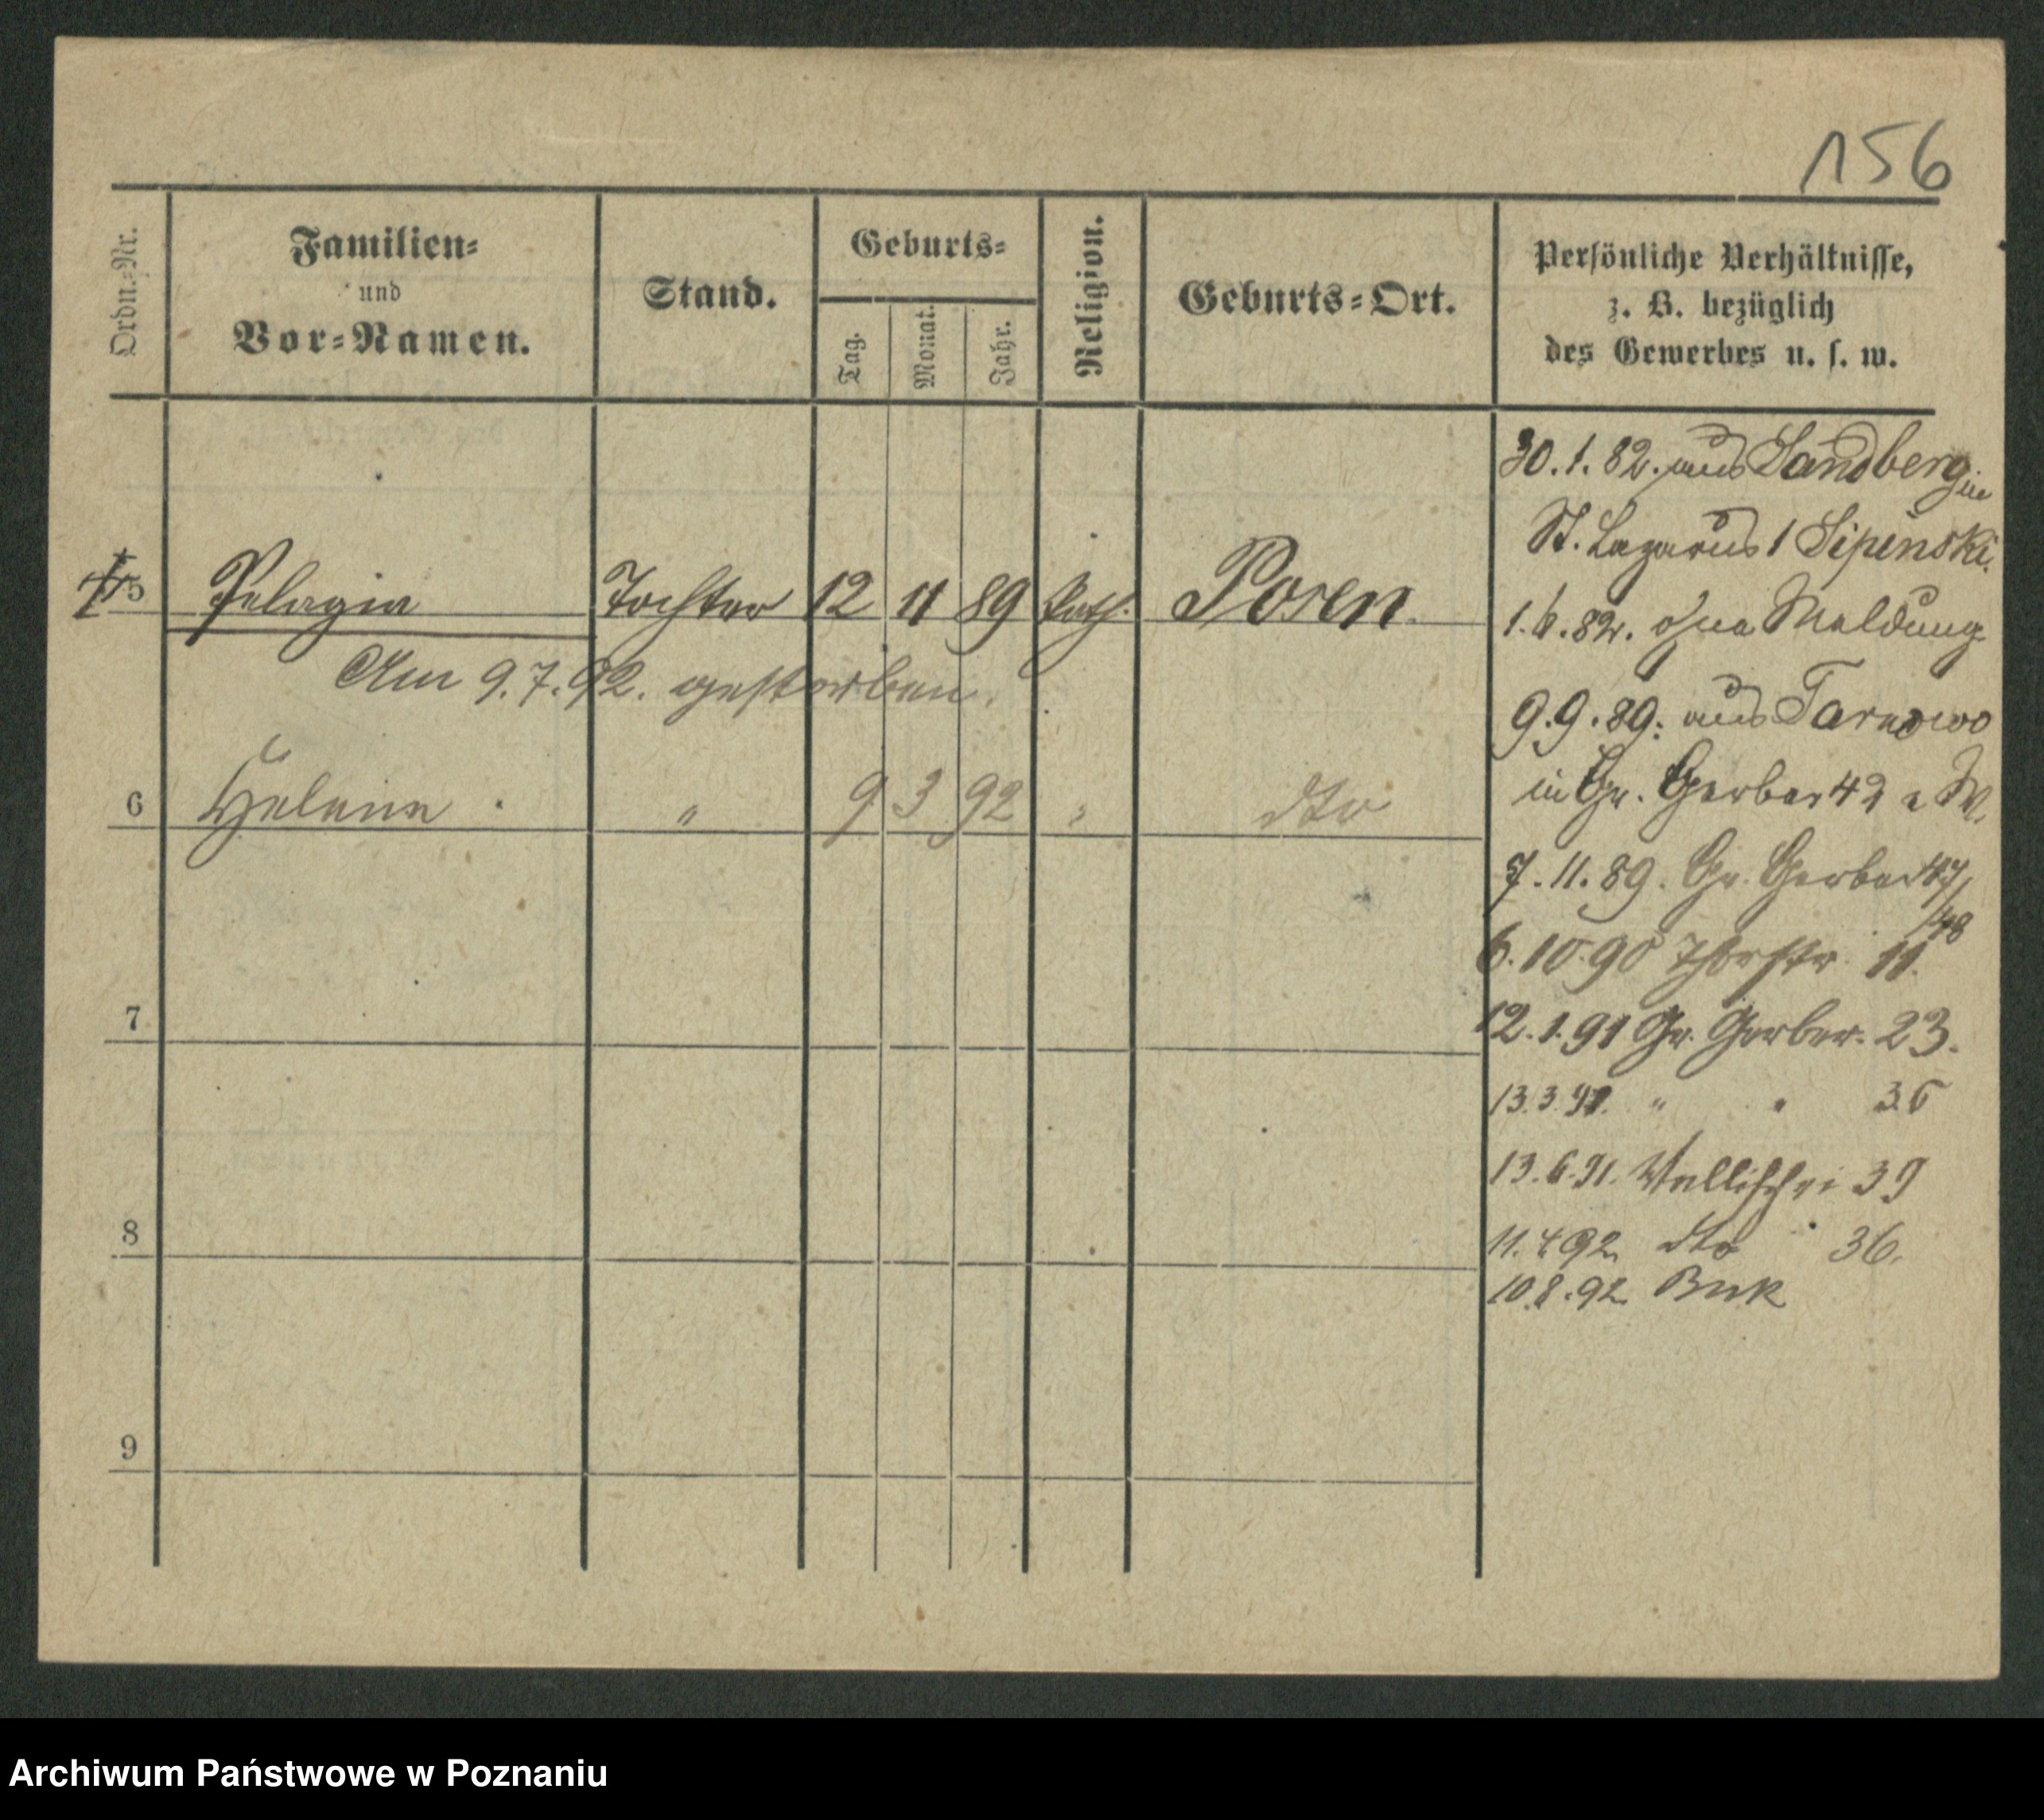 156
Ordn.-Nr.
Familien-
und
Vor-Namen.
Stand.
Geburts-
Tag.
Monat.
Jahr.
Religion.
Geburts-Ort.
Persönliche Verhältnisse,
z. B. bezüglich
des Gewerbes u. s. w.
5 Pelagia Tochter 12 11 89 Kath. Posen
Am 9.7.92. gestorben.
6 Helena " 9 3 92 " dto
7
8
9
30.1.82. aus Sandberg in
St. Lazarus 1 Lipinski.
1.6.82. ohne Meldung
9.9.89. aus Tarnowo
in Gr. Gerber 42 W.
7.11.89. Gr. Gerber 47/
48
6.10.90 Thorstr. 11.
12.1.91 Gr. Gerber. 23.
13.3.91. " " 36
13.6.91. Wallischei 39
11.4.92. dto 36.
10.8.92 Buk
Archiwum Państwowe w Poznaniu